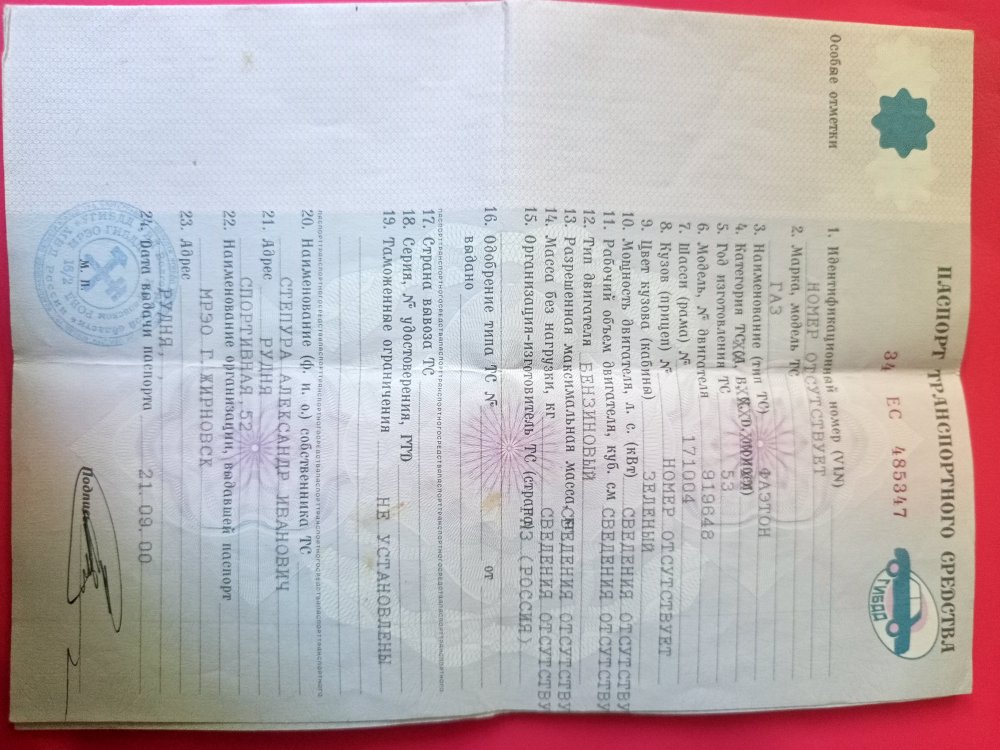 Особые отметки
ПАСПОРТ ТРАНСПОРТНОГО СРЕДСТВА
34 ЕС 485347
ГИБДД
1. Идентификационный номер (VIN)
НОМЕР ОТСУТСТВУЕТ
2. Марка, модель ТС
ГАЗ
3. Наименование (тип ТС) ФАЭТОН
4. Категория ТС
5. Год изготовления ТС 53
6. Модель, № двигателя 919648
7. Шасси (рама) № 171004
8. Кузов (прицеп) № НОМЕР ОТСУТСТВУЕТ
9. Цвет кузова (кабины) ЗЕЛЕНЫЙ
10. Мощность двигателя, л. с. (кВт) СВЕДЕНИЯ ОТСУТСТВУ
11. Рабочий объем двигателя, куб. см СВЕДЕНИЯ ОТСУТСТВУ
12. Тип двигателя БЕНЗИНОВЫЙ
13. Разрешенная максимальная масса СВЕДЕНИЯ ОТСУТСТВУ
14. Масса без нагрузки, кг СВЕДЕНИЯ ОТСУТСТВУ
15. Организация-изготовитель ТС (страна) ГАЗ (РОССИЯ)
16. Одобрение типа ТС № от
выдано
17. Страна вывоза ТС
18. Серия, № удостоверения, ГТД
19. Таможенные ограничения НЕ УСТАНОВЛЕНЫ
20. Наименование (ф. и. о.) собственника ТС
СТЕПУРА АЛЕКСАНДР ИВАНОВИЧ
21. Адрес РУДНЯ
СПОРТИВНАЯ 52
22. Наименование организации, выдавшей паспорт
МРЭО Г.ЖИРНОВСК
23. Адрес
РУДНЯ, , ,
24. Дата выдачи паспорта 21.09.00
М. П.
Подпись